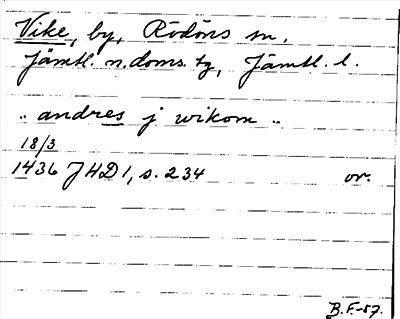 Vike, by, Rödöns sn,
Jämtl. n. doms. tg, Jämtl. l.
.. andres j wikom ..
18/3
1436 JHD 1, s. 234 or.
B.F.-57.